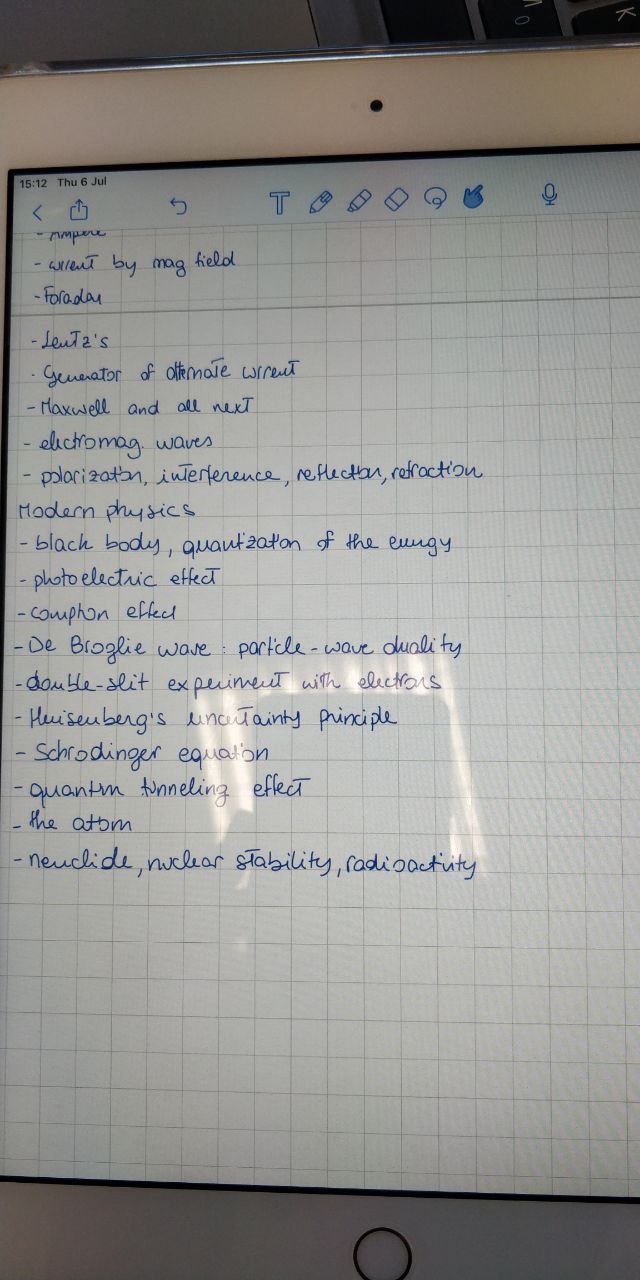 M O
K
15:12 Thu 6 Jul
T
- Ampere
- current by mag field
- Faraday
- Lentz's
- Generator of alternate current
- Maxwell and all next
- electromag. waves
- polarization, interference, reflection, refraction
Modern physics
- black body, quantization of the energy
- photoelectric effect
- compton effect
- De Broglie wave : particle-wave duality
- double-slit experiment with electrons
- Heisenberg's uncertainty principle
- Schrodinger equation
- quantum tunneling effect
- the atom
- neuclide, nuclear stability, radioactivity